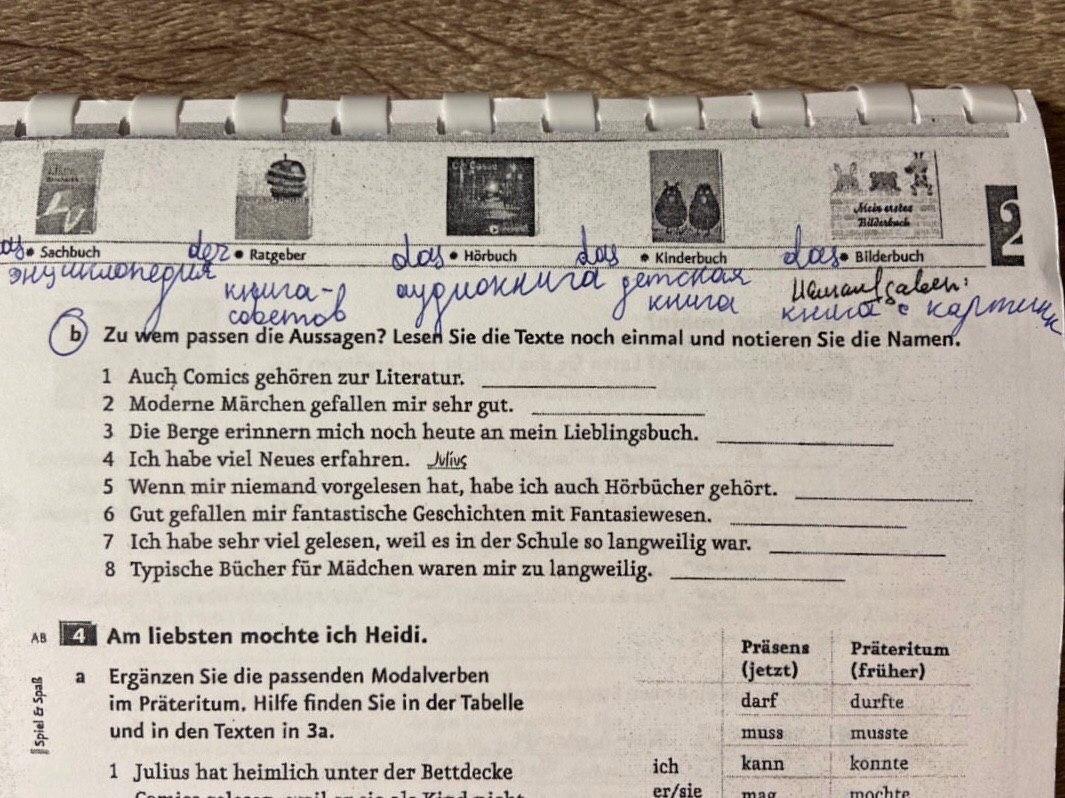 Mein erstes
Bilderbuch
2
das • Sachbuch der • Ratgeber das • Hörbuch das • Kinderbuch das • Bilderbuch
энциклопедия книга-советов аудиокнига детская книга Hausaufgaben: книга с картинк
b Zu wem passen die Aussagen? Lesen Sie die Texte noch einmal und notieren Sie die Namen.
1 Auch Comics gehören zur Literatur.
2 Moderne Märchen gefallen mir sehr gut.
3 Die Berge erinnern mich noch heute an mein Lieblingsbuch.
4 Ich habe viel Neues erfahren. Julius
5 Wenn mir niemand vorgelesen hat, habe ich auch Hörbücher gehört.
6 Gut gefallen mir fantastische Geschichten mit Fantasiewesen.
7 Ich habe sehr viel gelesen, weil es in der Schule so langweilig war.
8 Typische Bücher für Mädchen waren mir zu langweilig.
AB 4 Am liebsten mochte ich Heidi.
Spiel & Spaß
a Ergänzen Sie die passenden Modalverben
im Präteritum. Hilfe finden Sie in der Tabelle
und in den Texten in 3a.
1 Julius hat heimlich unter der Bettdecke
Comics gelesen, weil er sie als Kind nicht
Präsens Präteritum
(jetzt) (früher)
darf durfte
muss musste
ich kann konnte
er/sie mag mochte